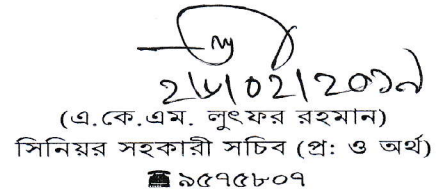 (এ.কে.এম. লুৎফর রহমান)
সিনিয়র সহকারী সচিব (প্র: ও অর্থ)
☎৯৫৭৫৮০৭